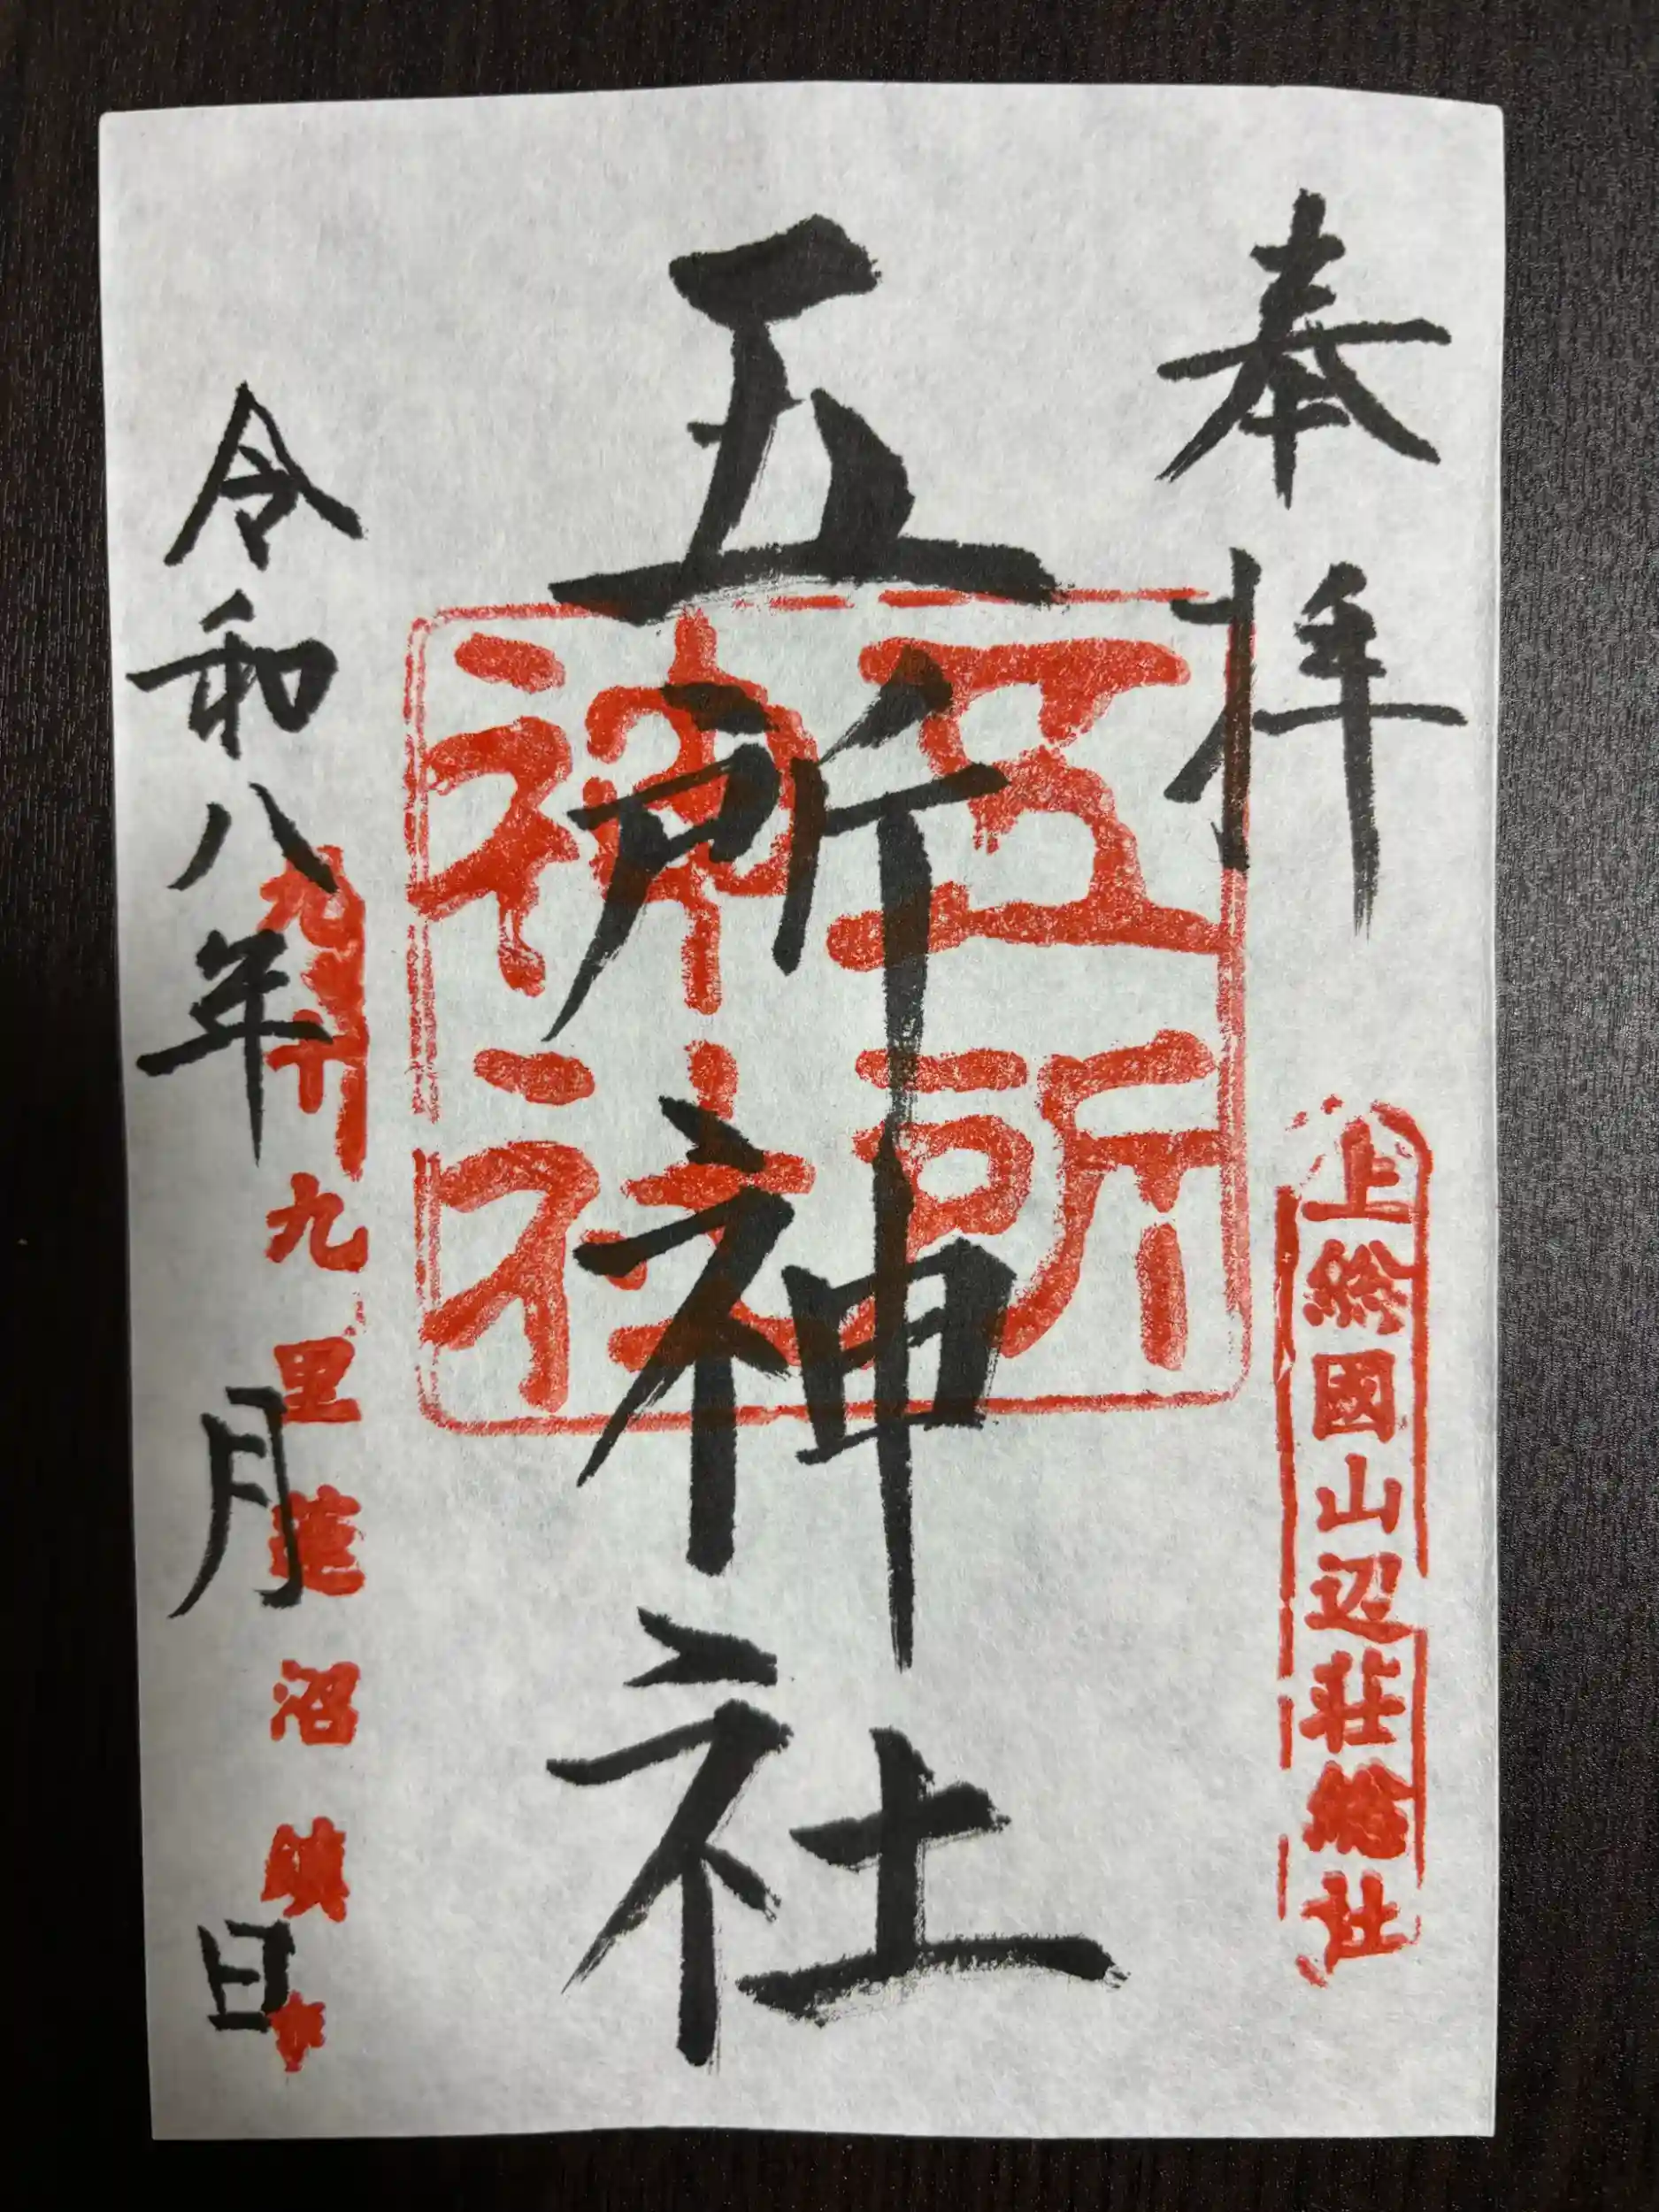 奉拝
上総國山辺荘総社
五所神社
五所神社
九十九里蓮沼鎮
令和八年 月 日